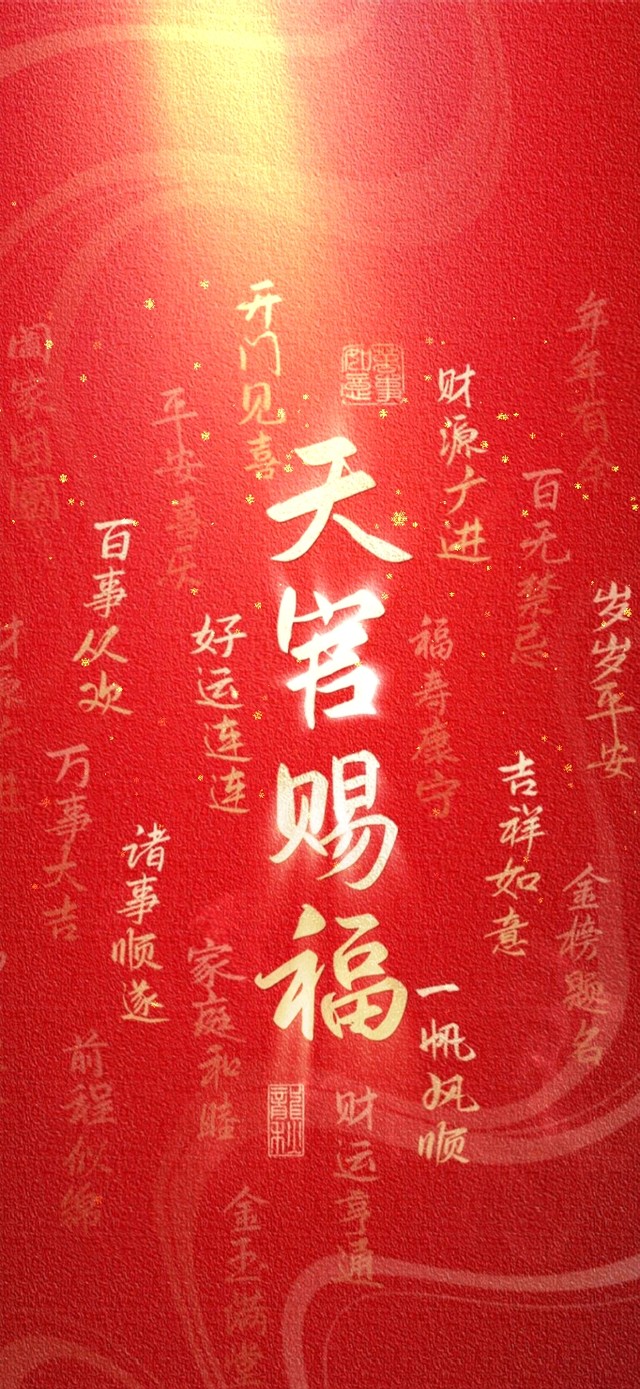 天官赐福
开门见喜
年年有余
阖家团圆
财源广进
平安喜乐
百无禁忌
百事从欢
岁岁平安
好运连连
福寿康宁
万事大吉
吉祥如意
诸事顺遂
金榜题名
家庭和睦
一帆风顺
前程似锦
财运亨通
金玉满堂